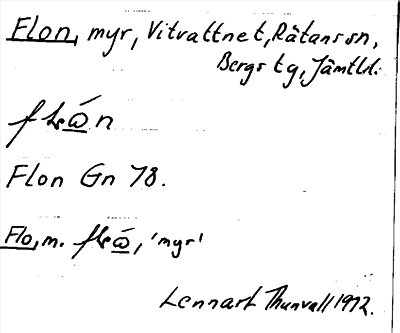 Flon, myr, Vitvattnet, Rätans sn,
Bergs tg, Jämtld.
Flon Gn 78.
Flo, m. , 'myr'
Lennart Thunvall 1972.